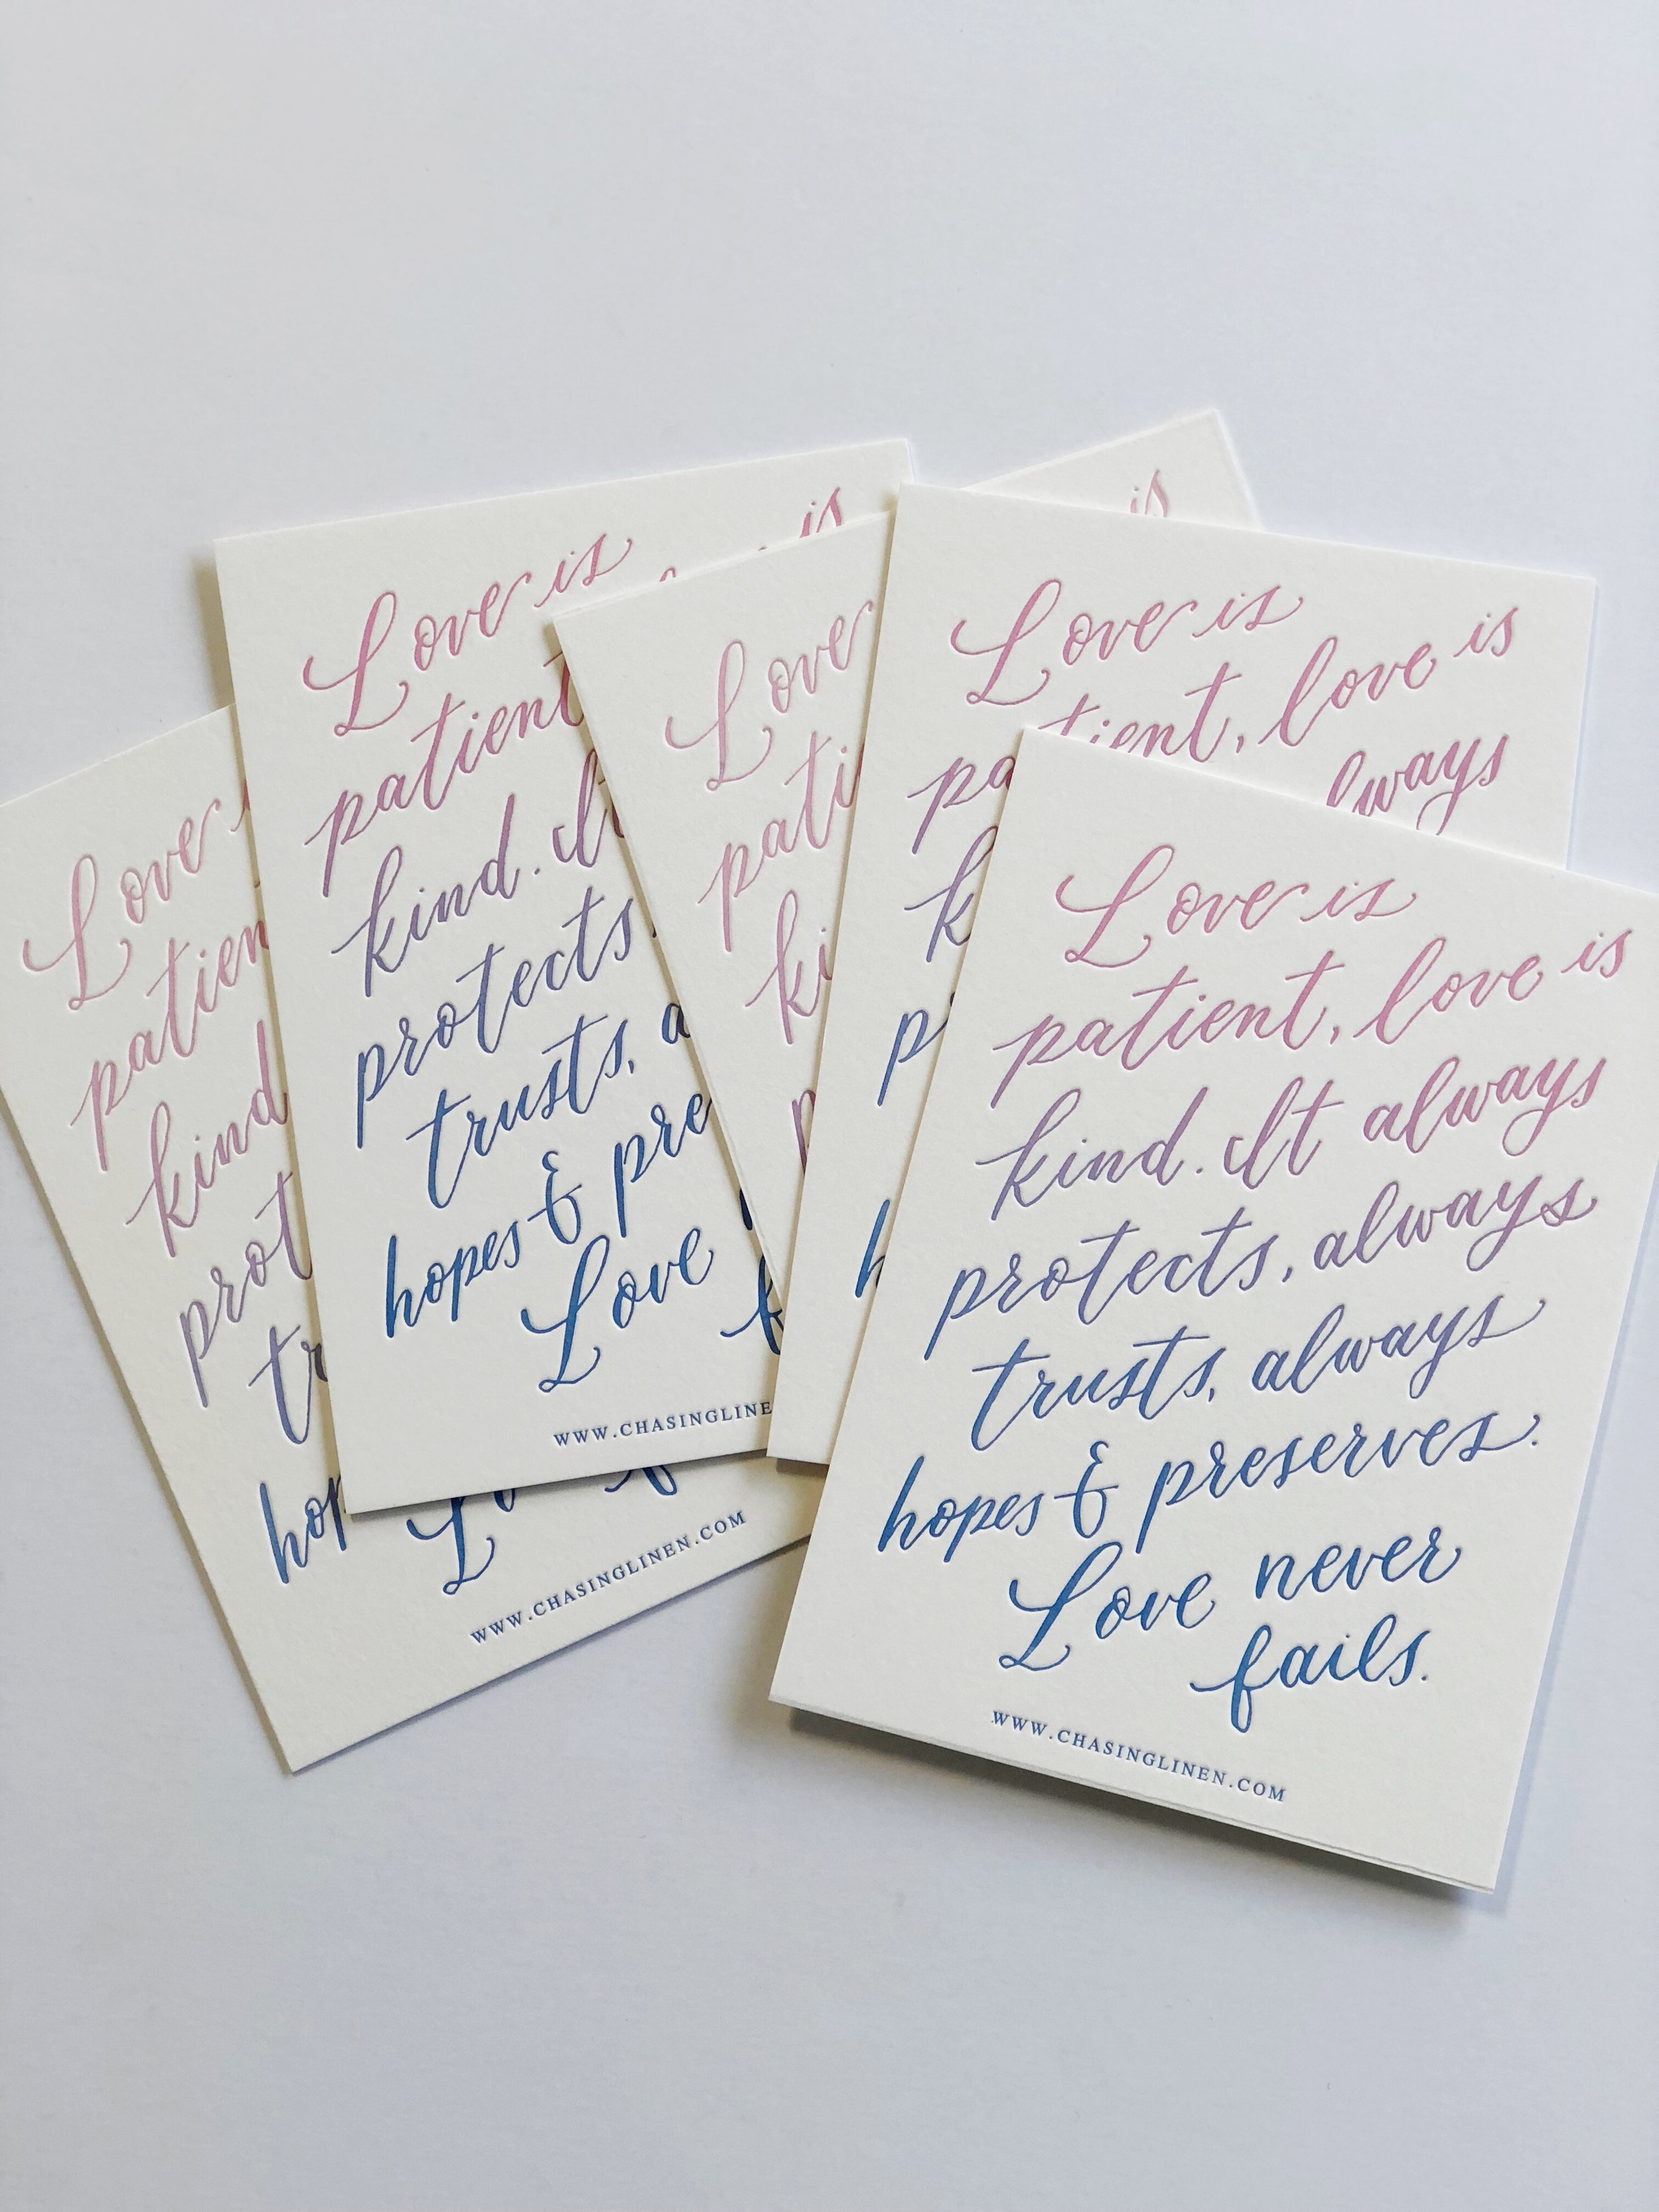 Love is
patient
kind
prot
tr
hop
L
WWW.CHASINGLINEN.COM
Love is
patient
kind. It
protects,
trusts, a
hopes & pre
Love
WWW.CHASINGLINE
is
Love
pati
ki
p
is
Love is
patient, love is
k
lways
p
h
Love is
patient, love is
kind. It always
protects, always
trusts, always
hopes & preserves.
Love never
fails.
WWW.CHASINGLINEN.COM